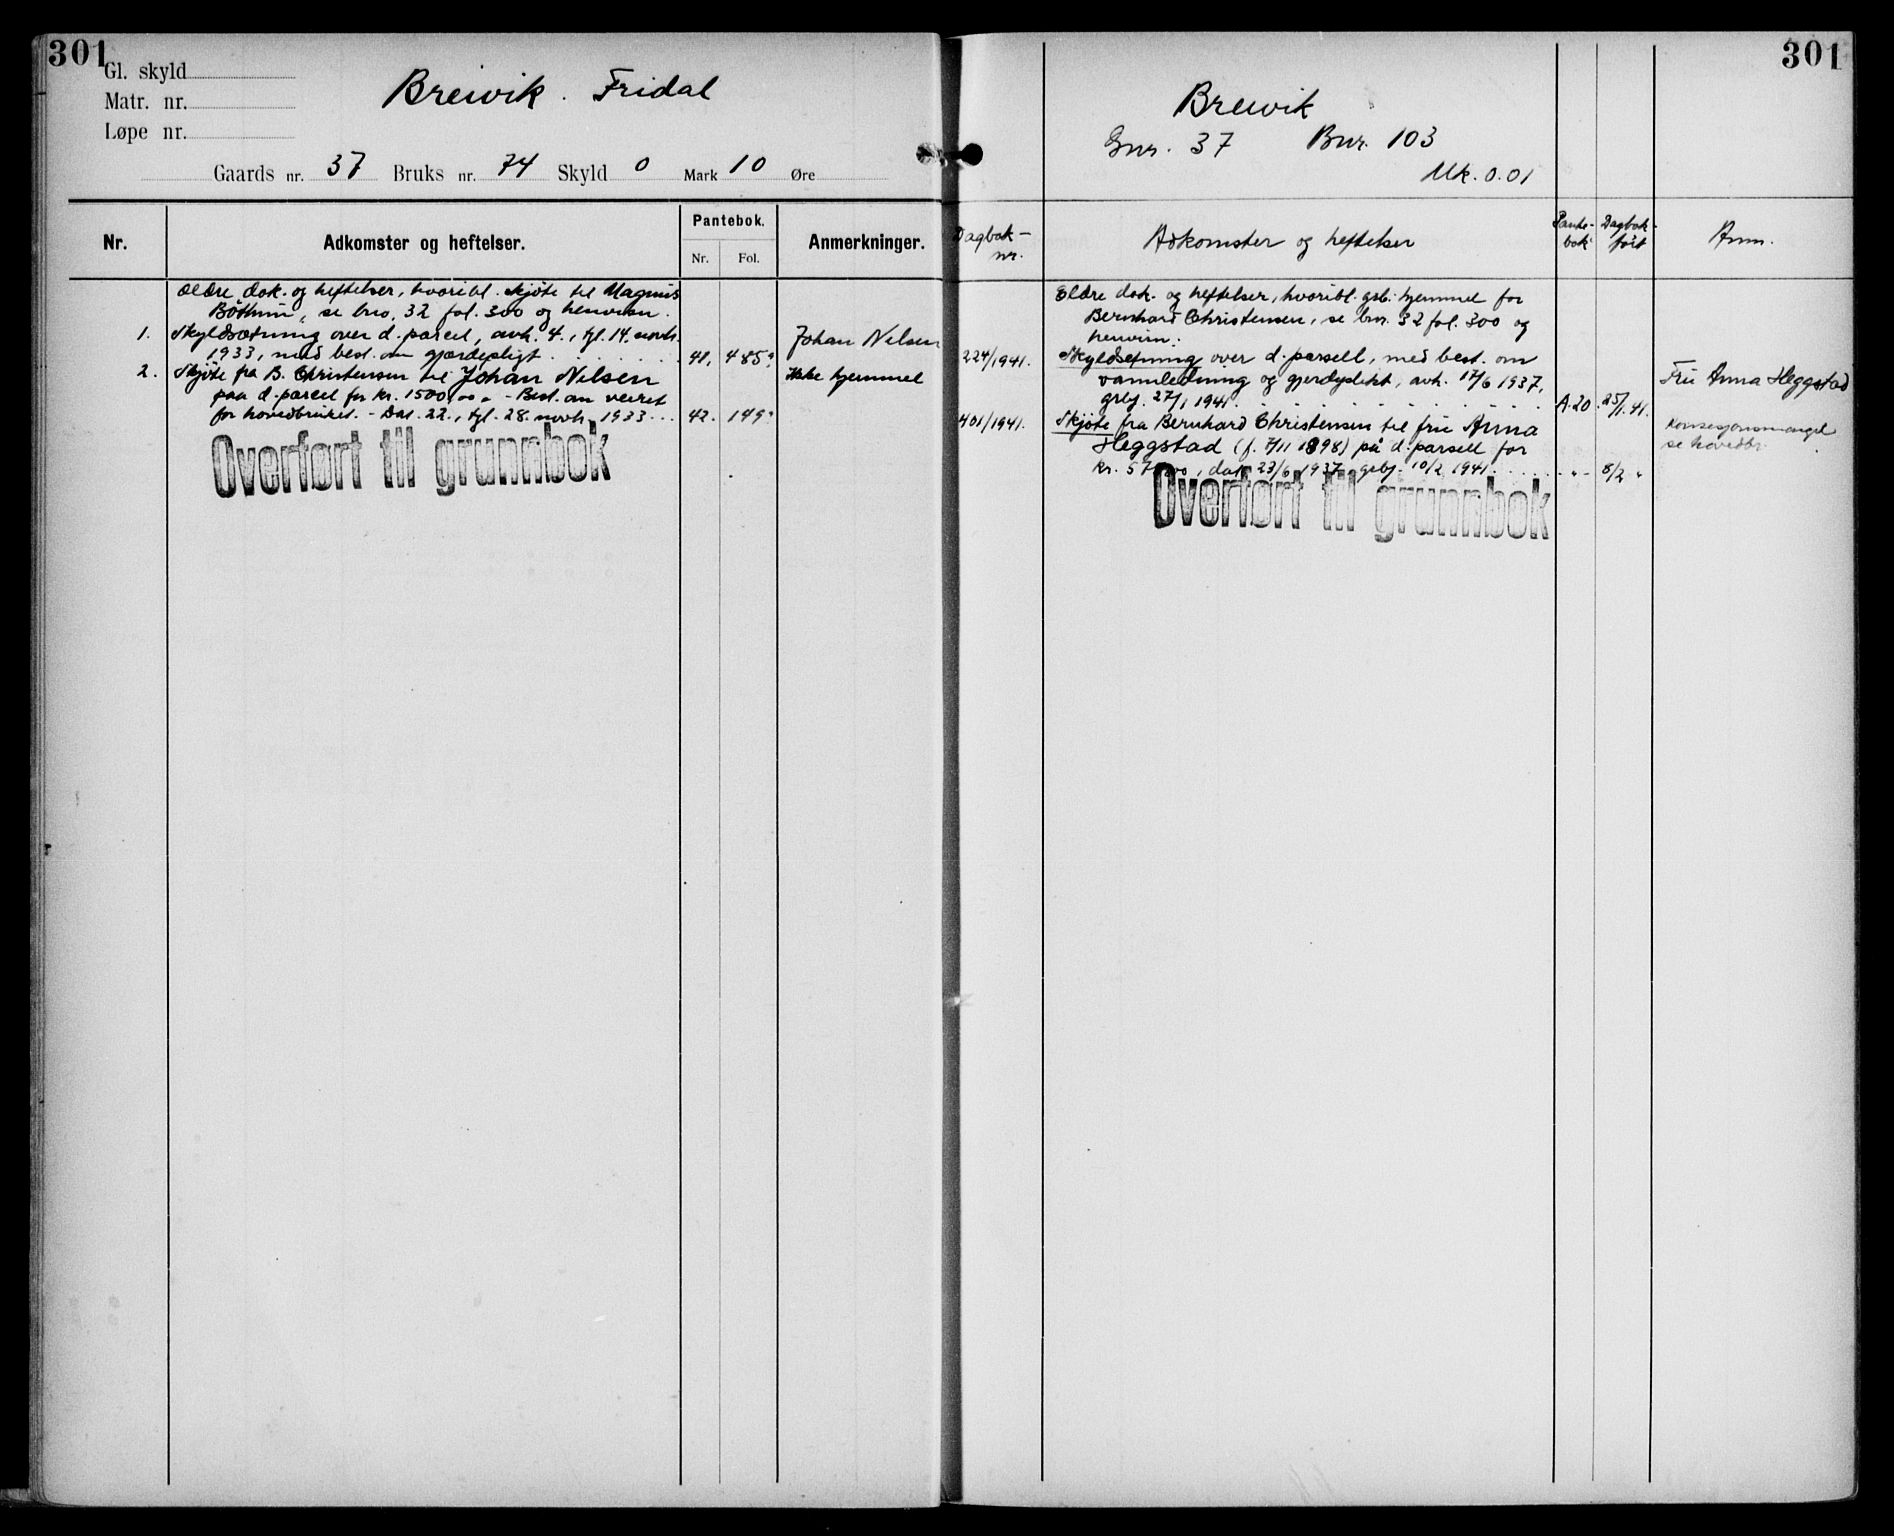 301
Gl. skyld
Matr. nr.
Løpe nr.
Breivik. Fridal
Gaards nr. 37 Bruks nr. 74 Skyld 0 Mark 10 Øre
Nr.
Adkomster og heftelser.
Pantebok.
Nr. Fol.
Anmerkninger.
Ældre dok. og heftelser, hvoribl. skjøte til Magnus
Böthun, se bno, 32 fol. 300 og henvisn.
1. Skyldsætning over d. parcel, avh. 4., tgl. 14. novbr.
1933, med best. om gjærdepligt 41, 485
Johan Nilsen
2. Skjøte fra B. Christensen til Johan Nilsen
Ikke hjemmel
paa d. parcel for kr. 1500,00. - Best. om veiret
for hovedbruket. - Dat. 22., tgl. 28. novbr. 1933 42. 149
Overført til grunnbok
301
Breivik
Gnr. 37 Bnr. 103
Mk. 0.01
Dagbok-
nr.
Adkomster og heftelser
Pante-
bok
Dagbok-
ført
Anm.
Eldre dok. og heftelser, hvoribl. grb. hjemmel for
Bernhard Christensen, se bnr. 32 fol. 300 og
henvisn.
224/1941. Skyldsetning over d. parsell, med best. om
vannledning og gjerdeplikt, avh. 17/6 1937,
grbj. 27/1 1941. A.20. 25/1.41.
Fru Anna Heggstad
401/1941. Skjøte fra Bernhard Christensen til fru Anna
Heggstad (f. 7/11 1898) på d. parsell for
kr. 57,00, dat. 23/6 1937, grbj. 10/2 1941. - " - 8/2 "
Konsesjonsmangel
se hovedbr.
Overført til grunnbok